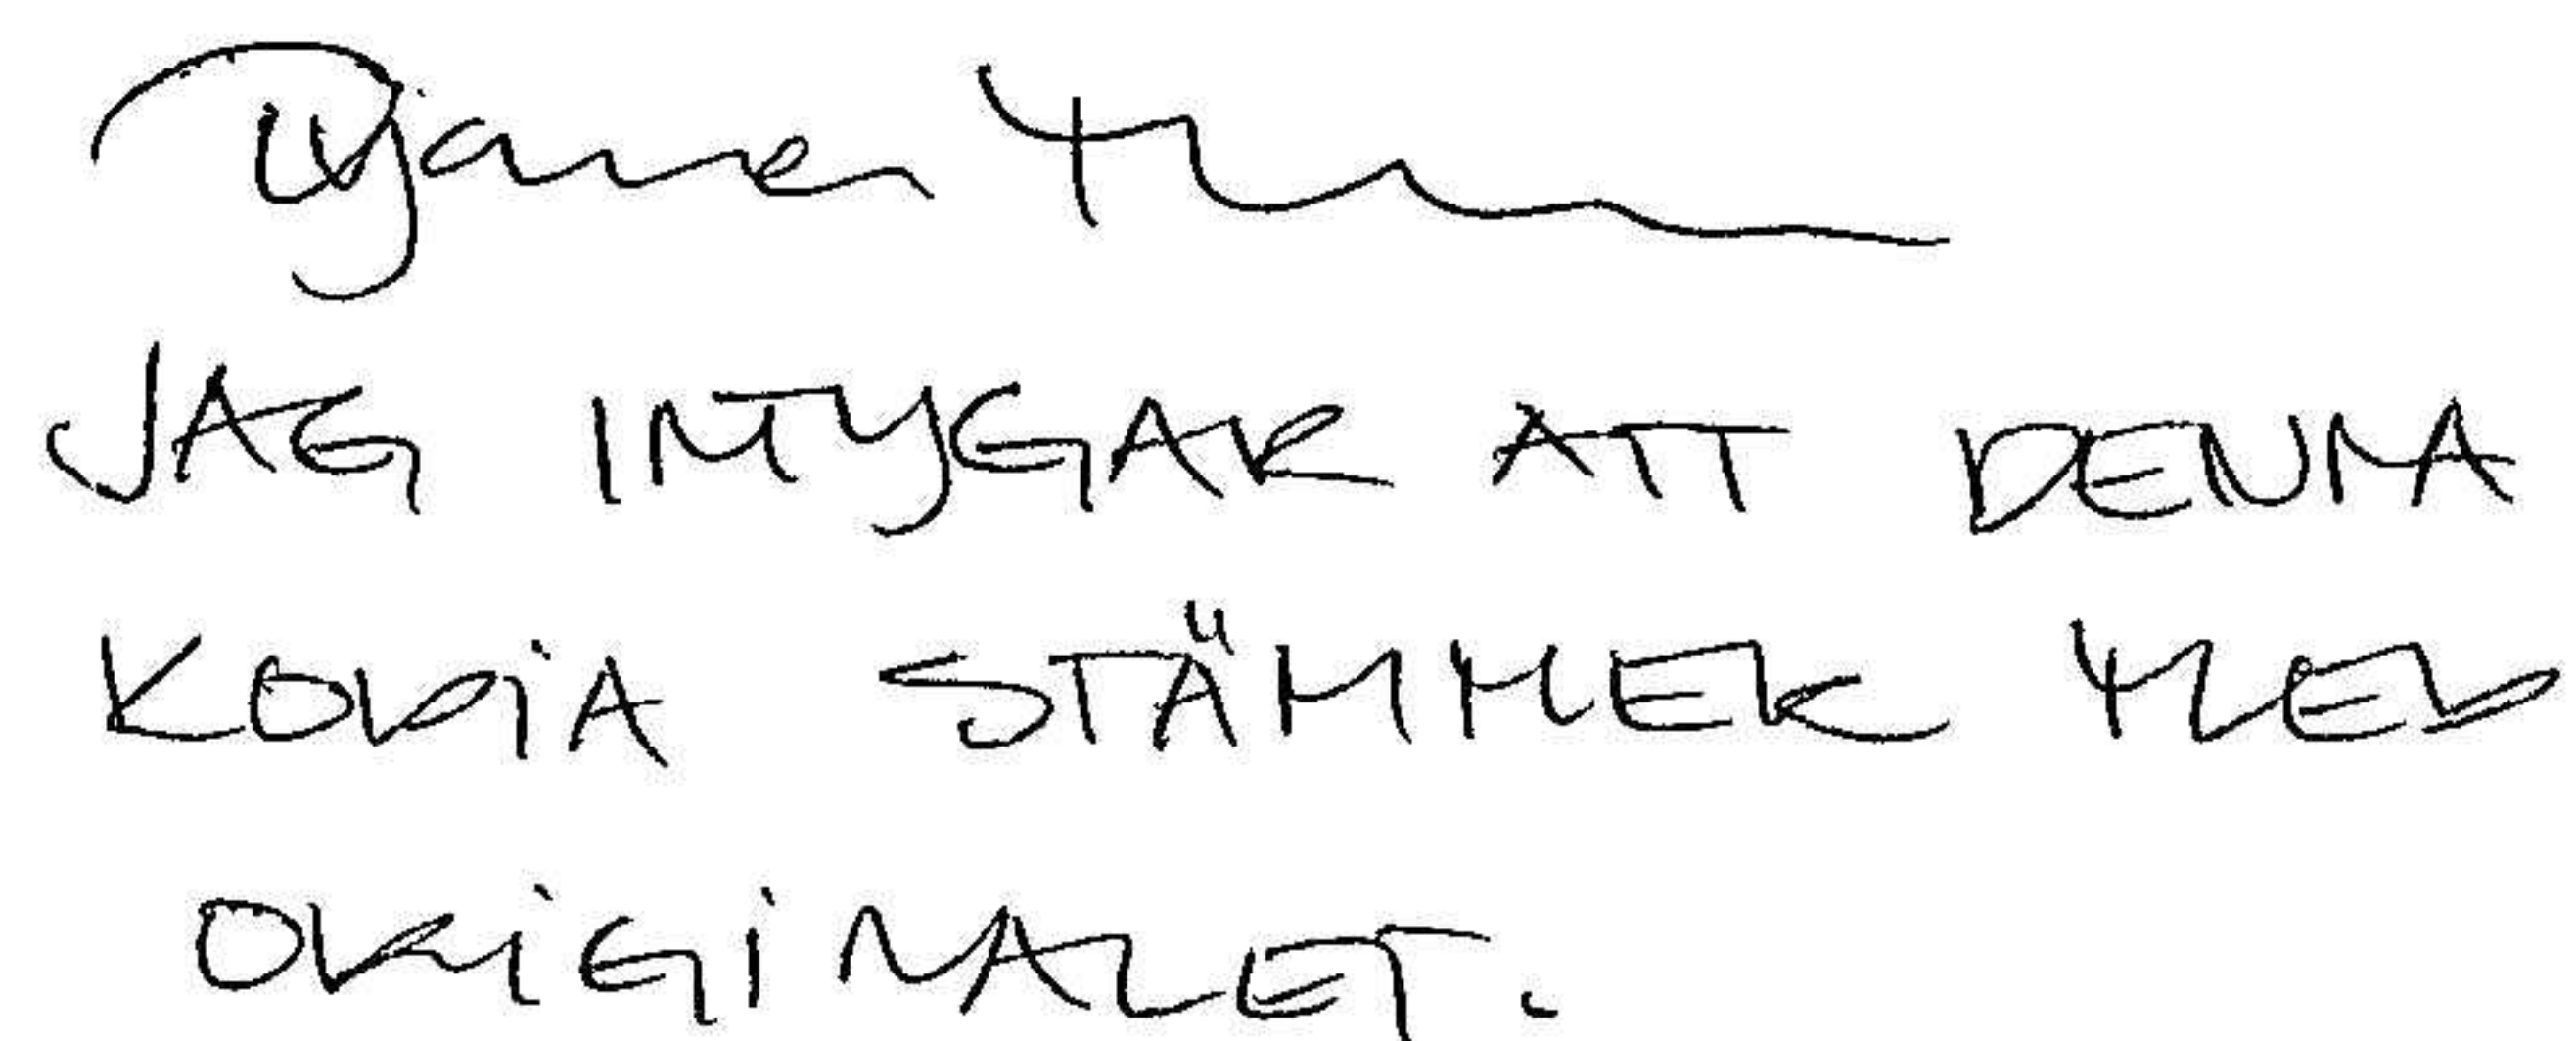 JAG INTYGAR ATT DENNA
KOPIA STÄMMER MED
ORIGINALET.